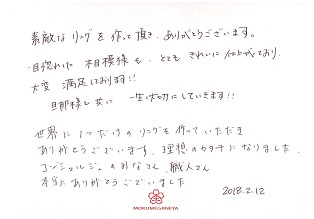 素敵なリングを作って頂き、ありがとうございます。
一目惚れした木目模様も、とてもきれいに仕上がっており、
大変満足しております!!
旦那様と共に一生大切にしていきます!!
世界に1つだけのリングを作っていただき
ありがとうございます。理想のカタチになりました。
コンシェルジュのみなさん、職人さん
本当にありがとうございました
2018.2.12
MOKUMEGANEYA